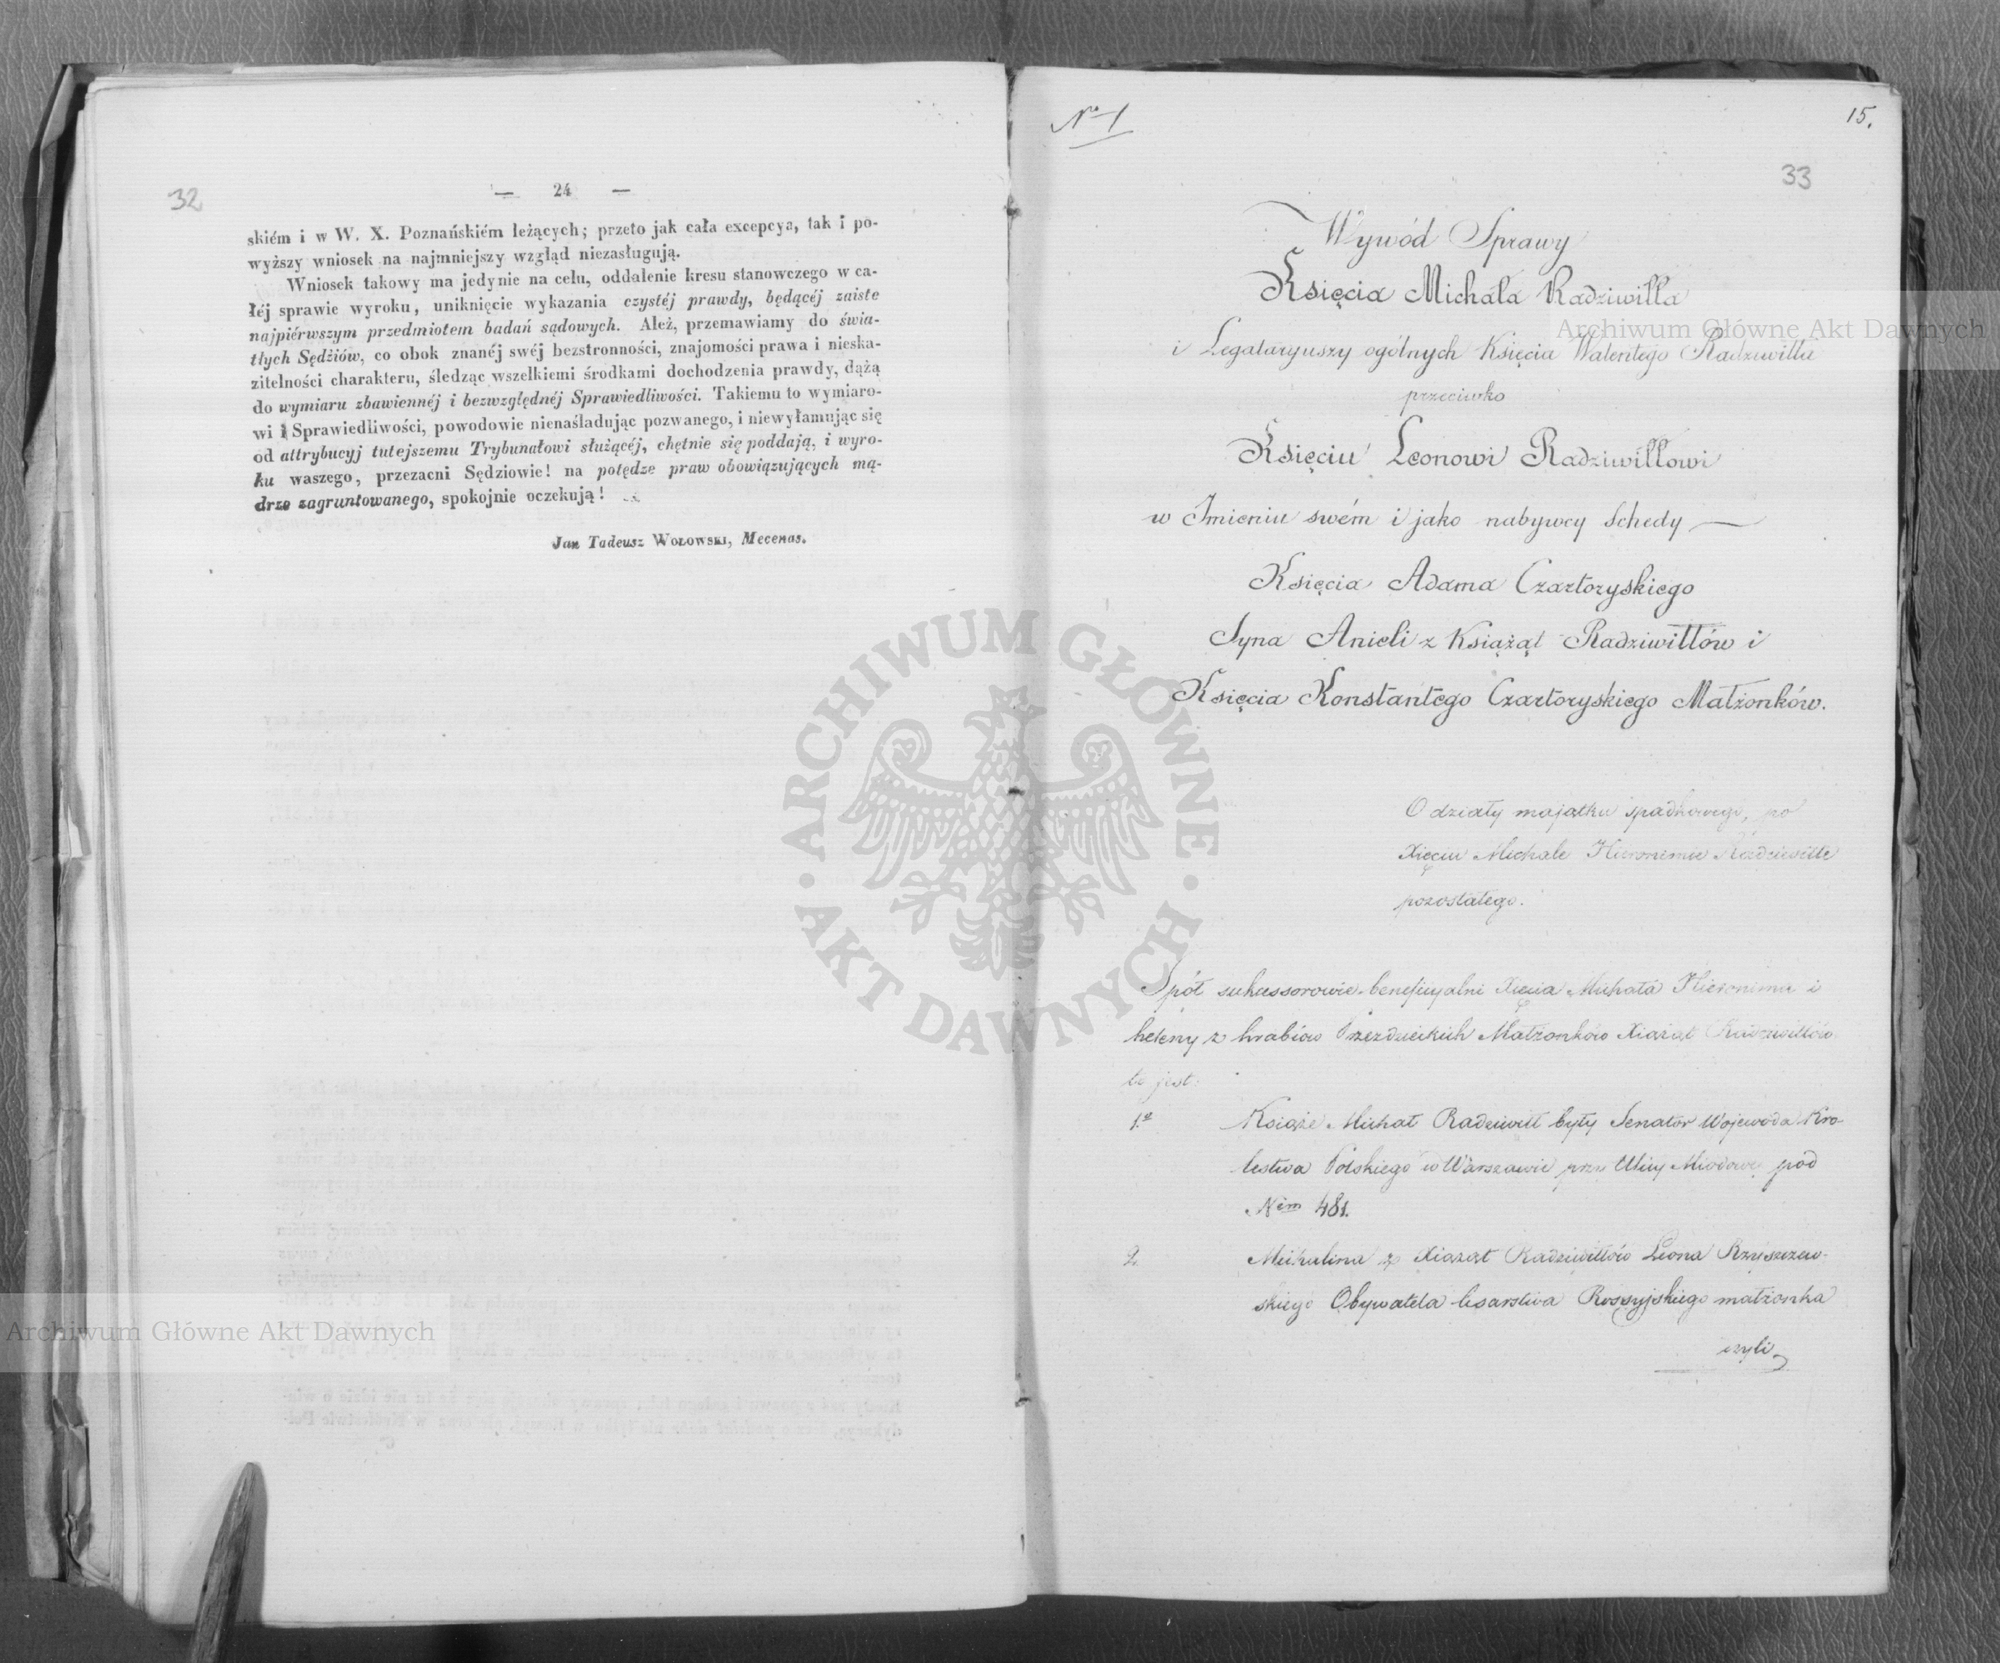 32
— 24 —
skiém i w W. X. Poznańskiém leżących; przeto jak cała excepcya, tak i po-
wyższy wniosek na najmniejszy wzgląd niezasługują.
Wniosek takowy ma jedynie na celu, oddalenie kresu stanowczego w ca-
łéj sprawie wyroku, uniknięcie wykazania czystéj prawdy, będącéj zaiste
najpiérwszym przedmiotem badań sądowych. Ależ, przemawiamy do świa-
tłych Sędziów, co obok znanéj swéj bezstronności, znajomości prawa i nieska-
zitelności charakteru, śledząc wszelkiemi środkami dochodzenia prawdy, dążą
do wymiaru zbawiennéj i bezwzględnéj Sprawiedliwości. Takiemu to wymiaro-
wi Sprawiedliwości, powodowie nienaśladując pozwanego, i niewyłamując się
od attrybucyj tutejszemu Trybunałowi służącéj, chętnie się poddają, i wyro-
ku waszego, przezacni Sędziowie! na potędze praw obowiązujących mą-
drze zagruntowanego, spokojnie oczekują!
Jan Tadeusz WOŁOWSKI, Mecenas.
No 1
15.
33
Wywód Sprawy
Księcia Michała Radziwiłła
i Legataryuszy ogólnych Księcia Walentego Radziwiłła
przeciwko
Księciu Leonowi Radziwiłłowi
w Imieniu swém i jako nabywcy Schedy —
Księcia Adama Czartoryskiego
Syna Anieli z Książąt Radziwiłłów i
Księcia Konstantego Czartoryskiego Małżonków.
O działy majątku spadkowego, po
Xięciu Michale Hieronimie Radziwille
pozostałego.
Spół sukcessorowie beneficyalni Xięcia Michała Hieronima i
heleny z hrabiów Przezdzieckich Małżonków Xiążąt Radziwiłłów
to jest:
1.e Książe Michał Radziwiłł były Senator Wojewoda Kró-
lestwa Polskiego w Warszawie przy Ulicy Miodowej pod
Nem 481.
2. Michalina z Xiążąt Radziwiłłów Leona Rzyszczew-
skiego Obywatela Cesarstwa Rossyjskiego małżonka
czyli
Archiwum Główne Akt Dawnych
Archiwum Główne Akt Dawnych
ARCHIWUM GŁÓWNE · AKT DAWNYCH ·